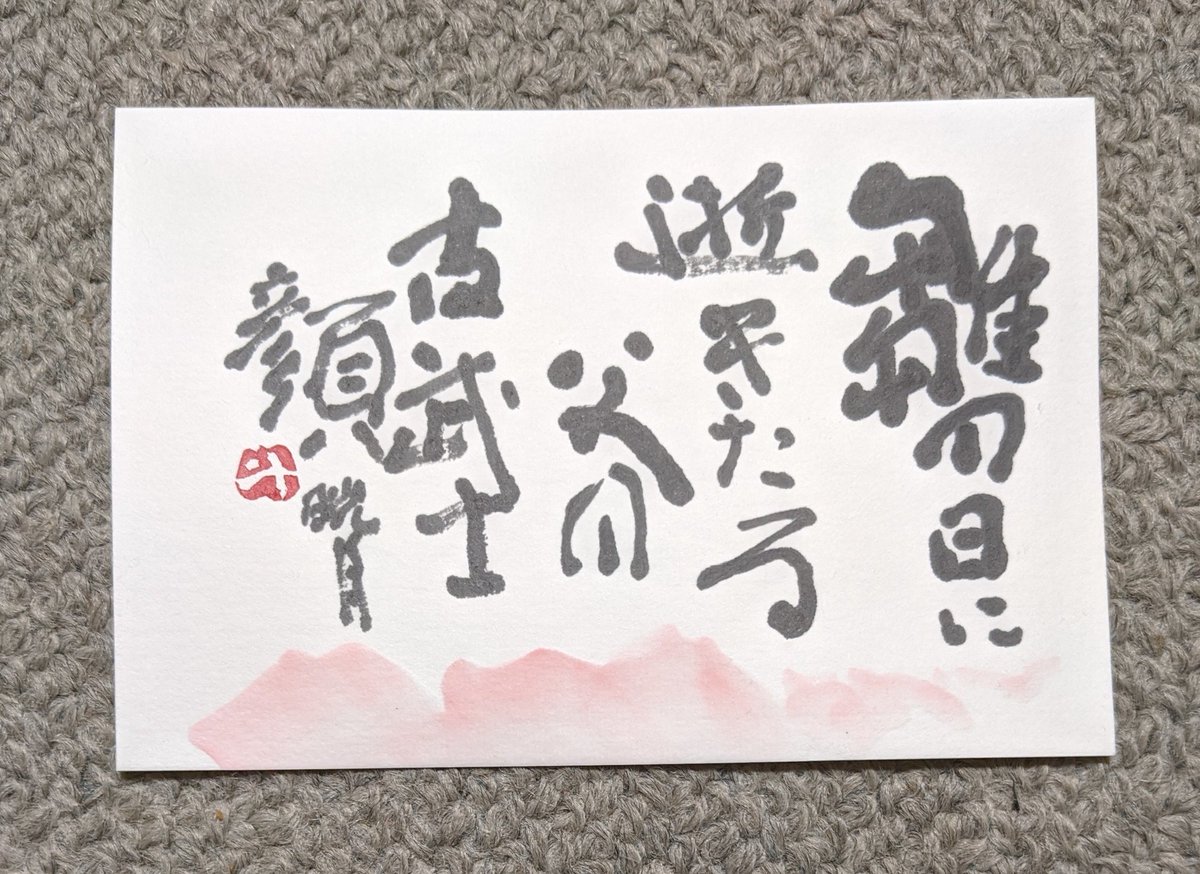 雛の日に
逝きたる
父の
古武士
顔